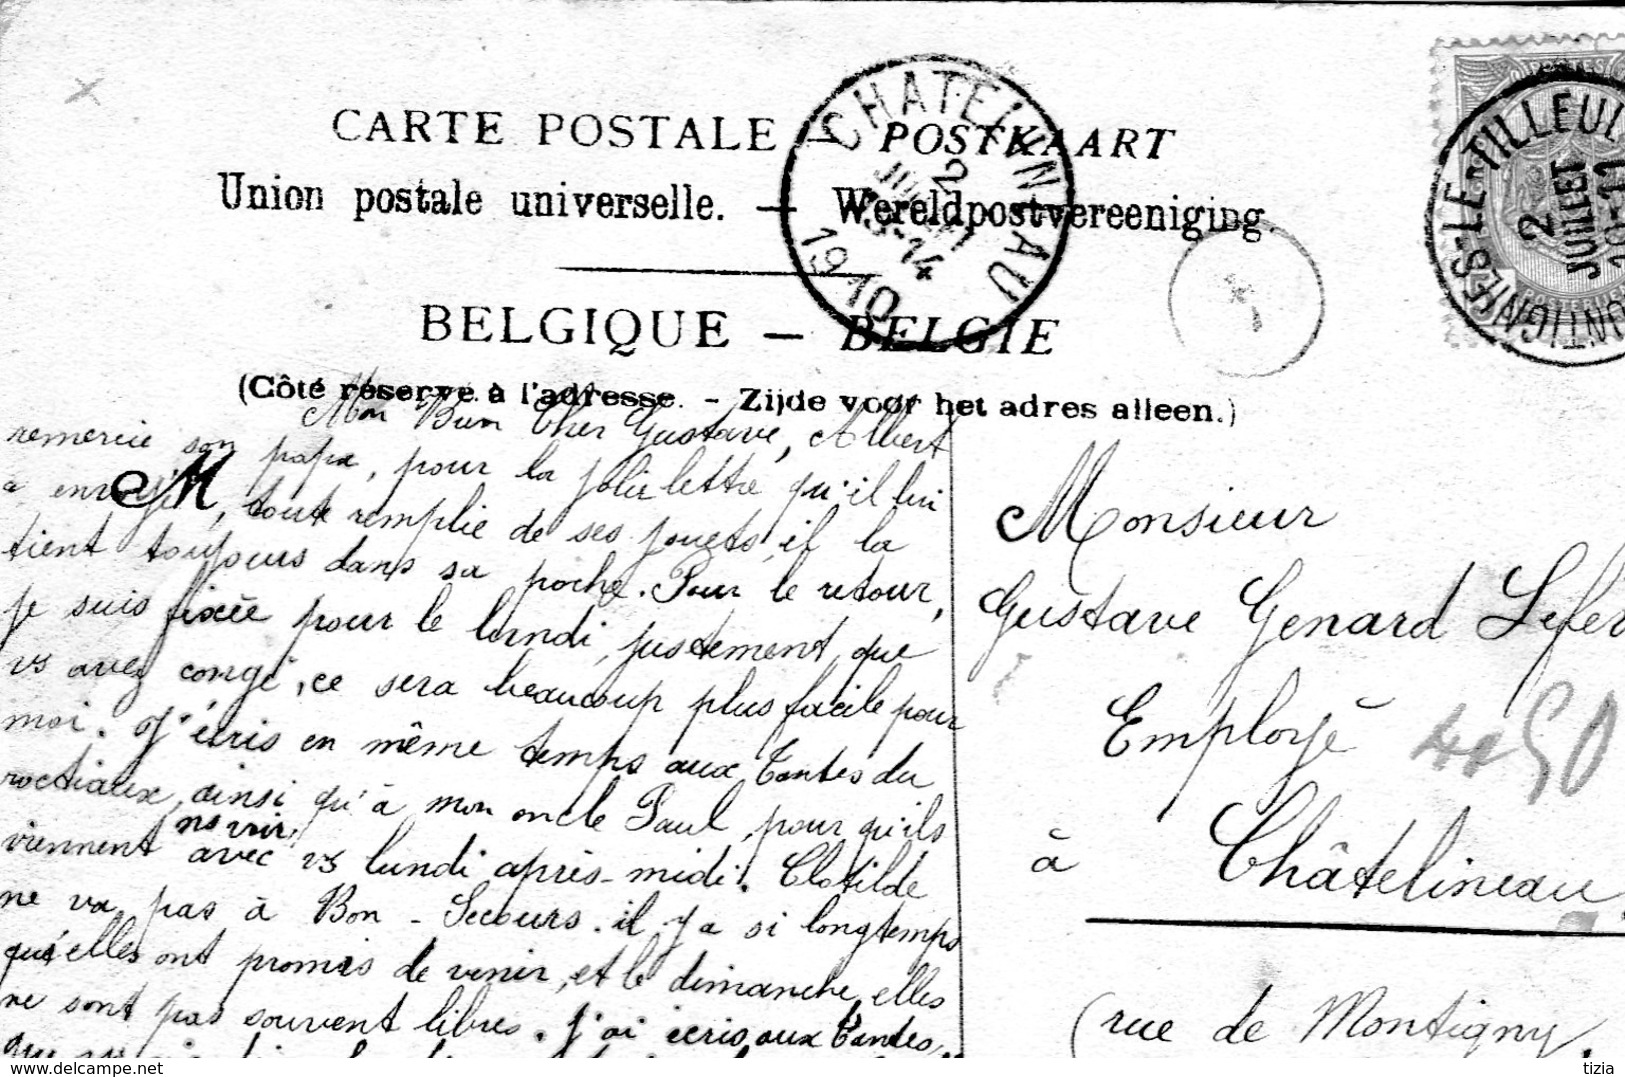 CARTE POSTALE — POSTKAART
Union postale universelle. — Wereldpostvereeniging.
BELGIQUE — BELGIE
(Côté réservé à l'adresse. - Zijde voor het adres alleen.)
CHATELINEAU
2
JUIL
13-14
1910
MONTIGNIES-LE-TILLEUL
2
JUILLET
10-11
Mon Bien Cher Gustave, Albert
remercie son papa, pour la jolie lettre qu'il lui
a envoyé, toute remplie de ses jouets, il la
tient toujours dans sa poche. Pour le retour,
je suis fixée pour le lundi, justement que
vs avez congé, ce sera beaucoup plus facile pour
moi. J'écris en même temps aux Tantes du
ainsi qu'à mon oncle Paul, pour qu'ils
viennent ns voir avec vs lundi après-midi. Clotilde
ne va pas à Bon-Secours. il y a si longtemps
qu'elles ont promis de venir, et le dimanche, elles
ne sont pas souvent libres. J'ai écris aux Tantes,
que
Monsieur
Gustave Genard Lefè
Employé
à Châtelineau
(rue de Montigny.
4 50
delcampe.net
tizia